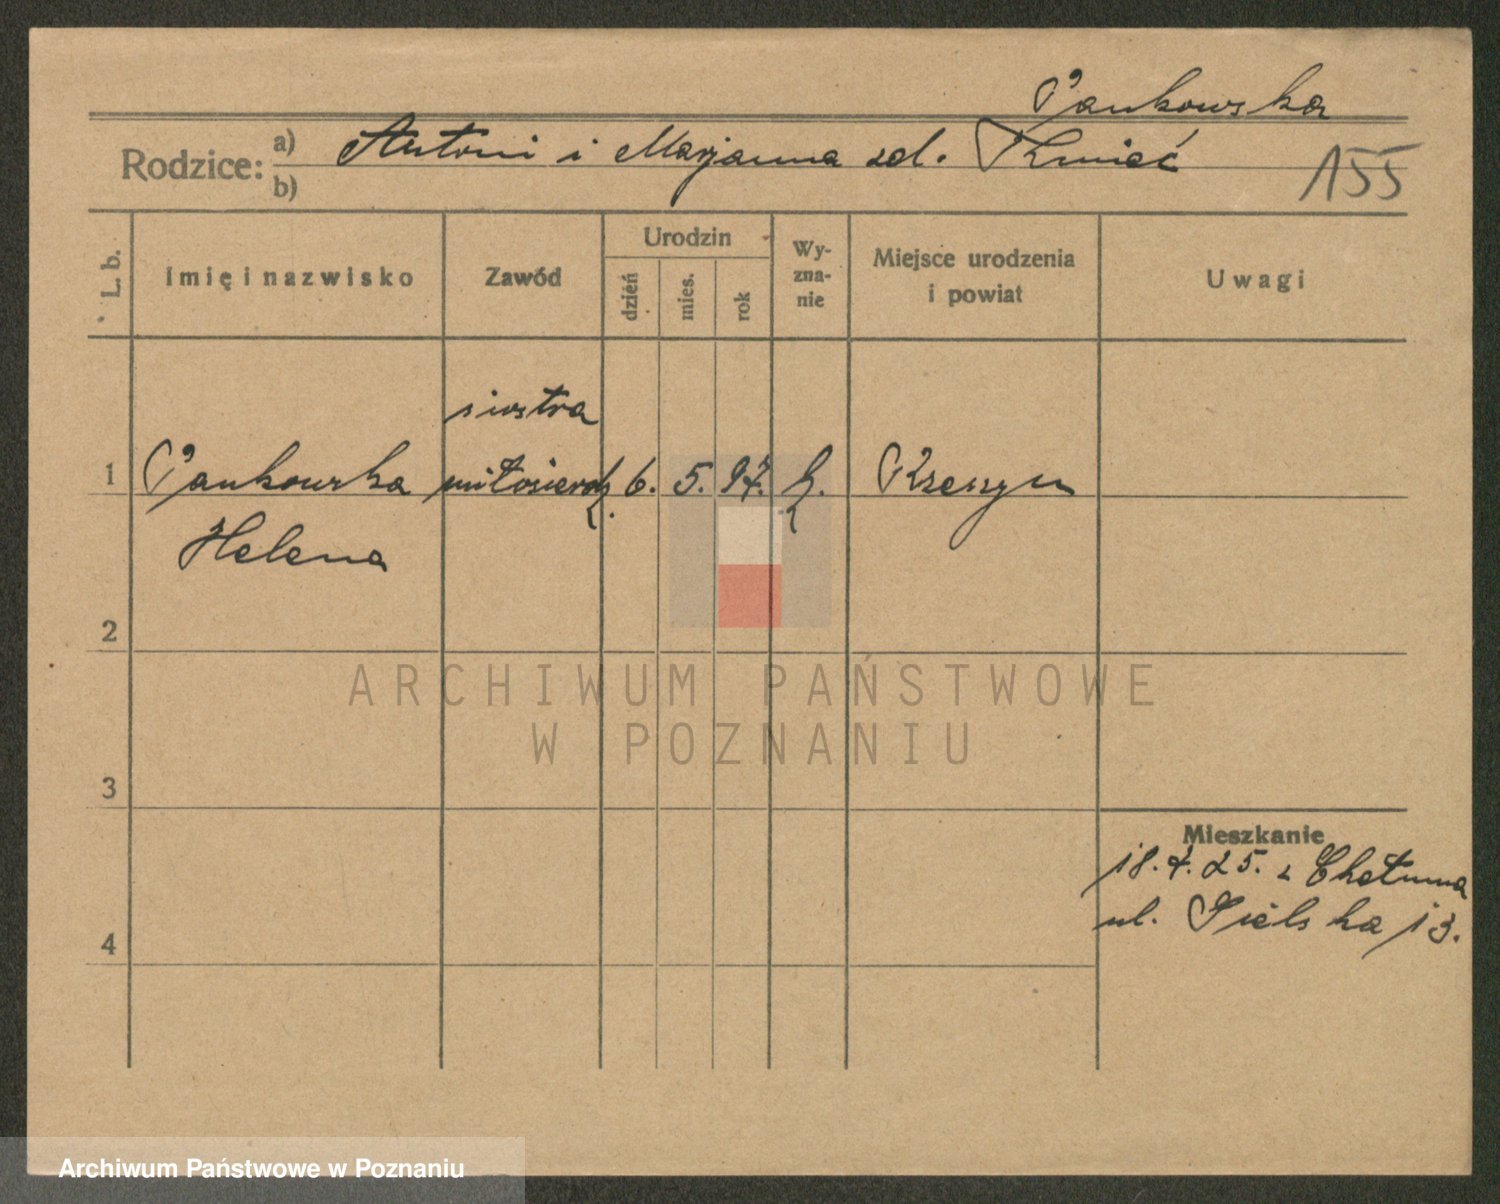 Pankowska
Rodzice: a) Antoni i Marjanna zd. Kmieć
b)
155
L. b.
Imię i nazwisko
Zawód
Urodzin
dzień
mies.
rok
Wy-
zna-
nie
Miejsce urodzenia
i powiat
Uwagi
siostra
1 Pankowska miłosierdz. 6. 5. 97. k.
Helena
2
ARCHIWUM PAŃSTWOWE
W POZNANIU
3
Mieszkanie
18.7.25. z Chełmna
4 ul. 13.
Archiwum Państwowe w Poznaniu